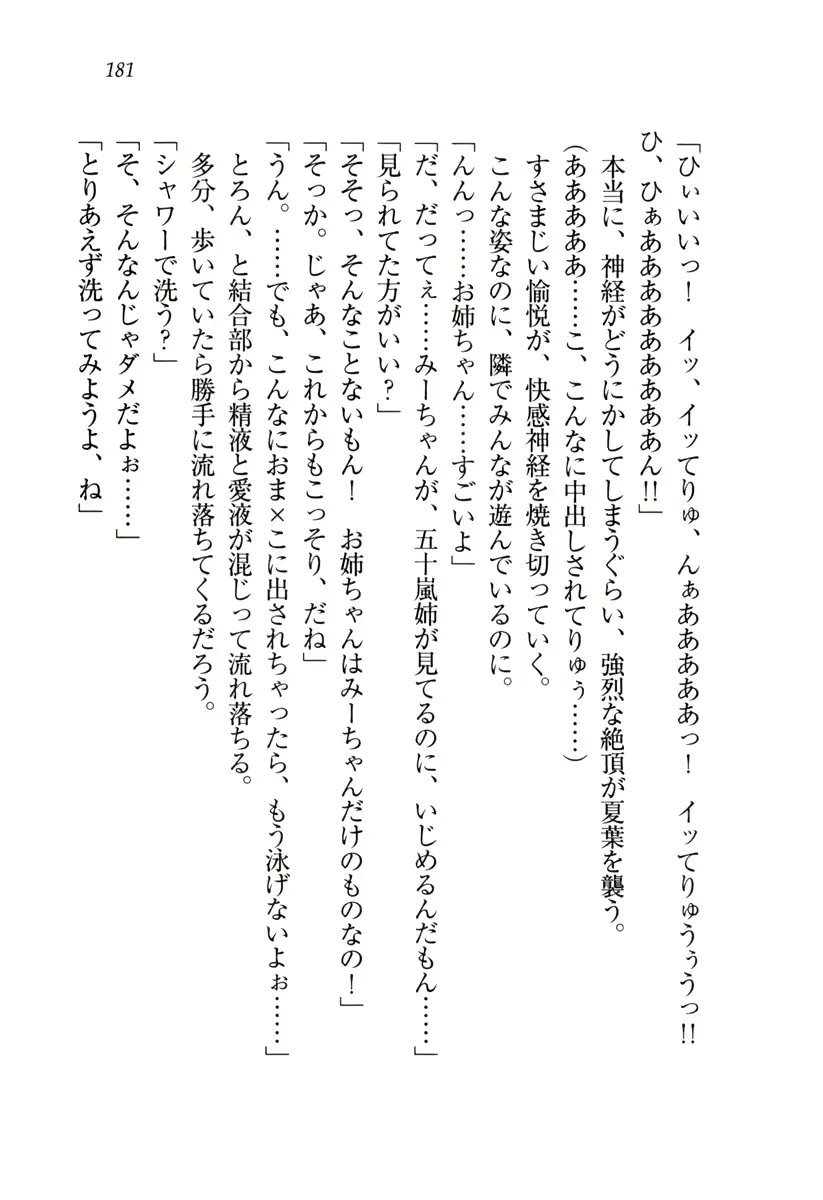 181
「ひぃいいっ！　イッ、イッてりゅ、んぁああああっ！　イッてりゅうぅうっ!!
ひ、ひぁああああああああん!!」
　本当に、神経がどうにかしてしまうぐらい、強烈な絶頂が夏葉を襲う。
（あああああ……こ、こんなに中出しされてりゅぅ……）
　すさまじい愉悦が、快感神経を焼き切っていく。
　こんな姿なのに、隣でみんなが遊んでいるのに。
「んんっ……お姉ちゃん……すごいよ」
「だ、だってぇ……みーちゃんが、五十嵐姉が見てるのに、いじめるんだもん……」
「見られてた方がいい？」
「そそっ、そんなことないもん！　お姉ちゃんはみーちゃんだけのものなの！」
「そっか。じゃあ、これからもこっそり、だね」
「うん。……でも、こんなにおま×こに出されちゃったら、もう泳げないよぉ……」
　とろん、と結合部から精液と愛液が混じって流れ落ちる。
　多分、歩いていたら勝手に流れ落ちてくるだろう。
「シャワーで洗う？」
「そ、そんなんじゃダメだよぉ……」
「とりあえず洗ってみようよ、ね」